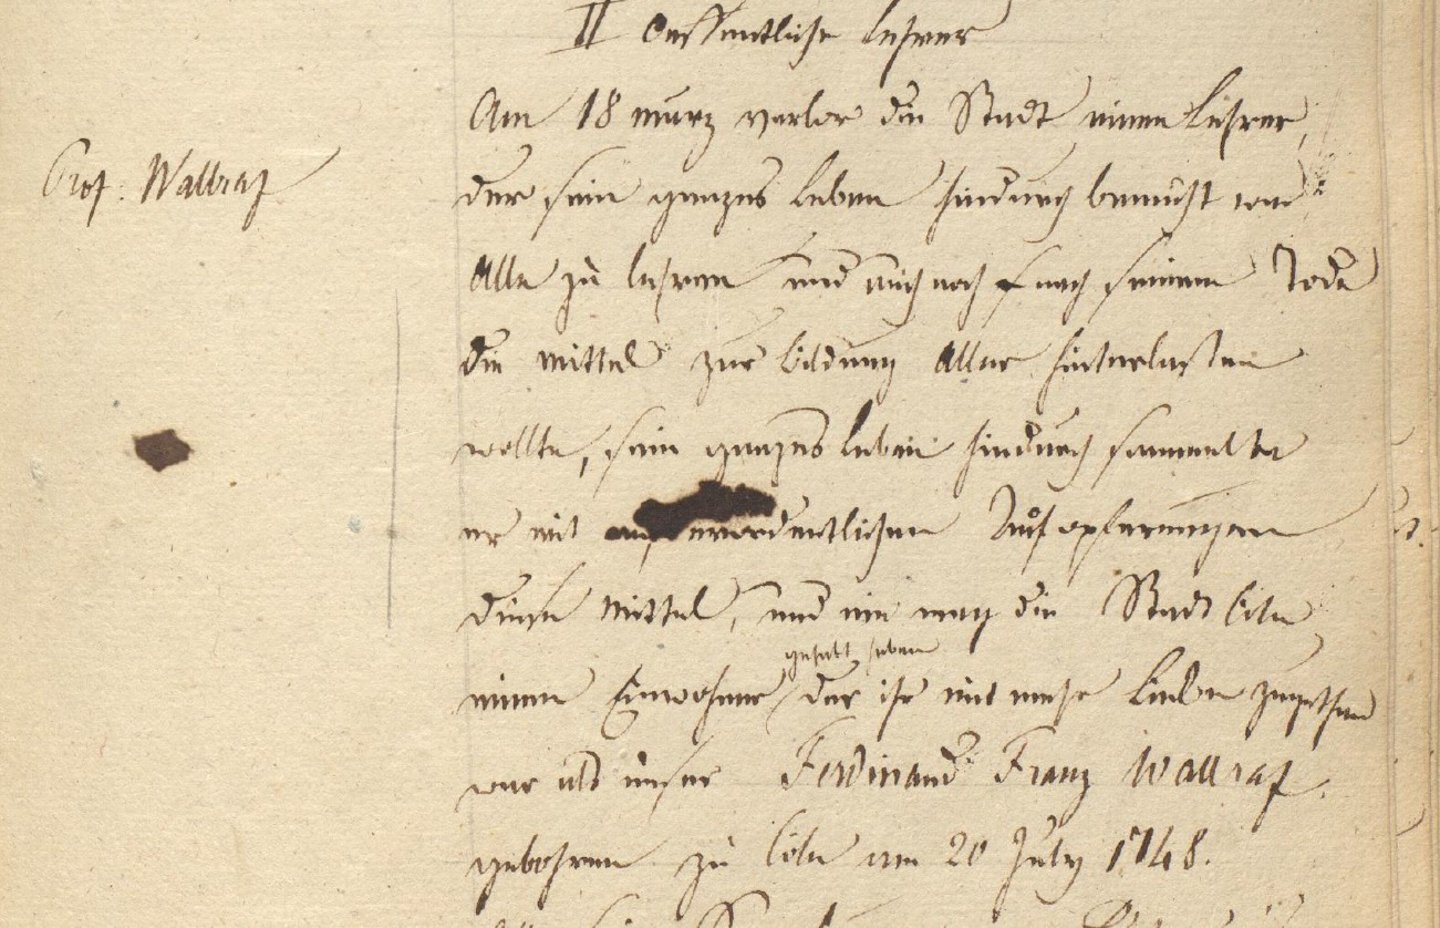 II Oeffentliche Lehrer
Am 18 märz verlor die Stadt einen Lehrer,
Prof. Wallraf
der sein ganzes Leben hindurch bemüht war
alle zu lehren und auch noch nach seinem Tode
die mittel zur bildung aller hinterlassen
wollte, sein ganzes Leben hindurch sammelte
er mit außerordentlichen Aufopferungen
diese Mittel, und nie mag die Stadt Cöln
gehabt haben
einen Einwohner der ihr mit mehr Liebe zugethan
war als unser Ferdinand Franz Wallraf.
gebohren zu Cöln am 20 July 1748.